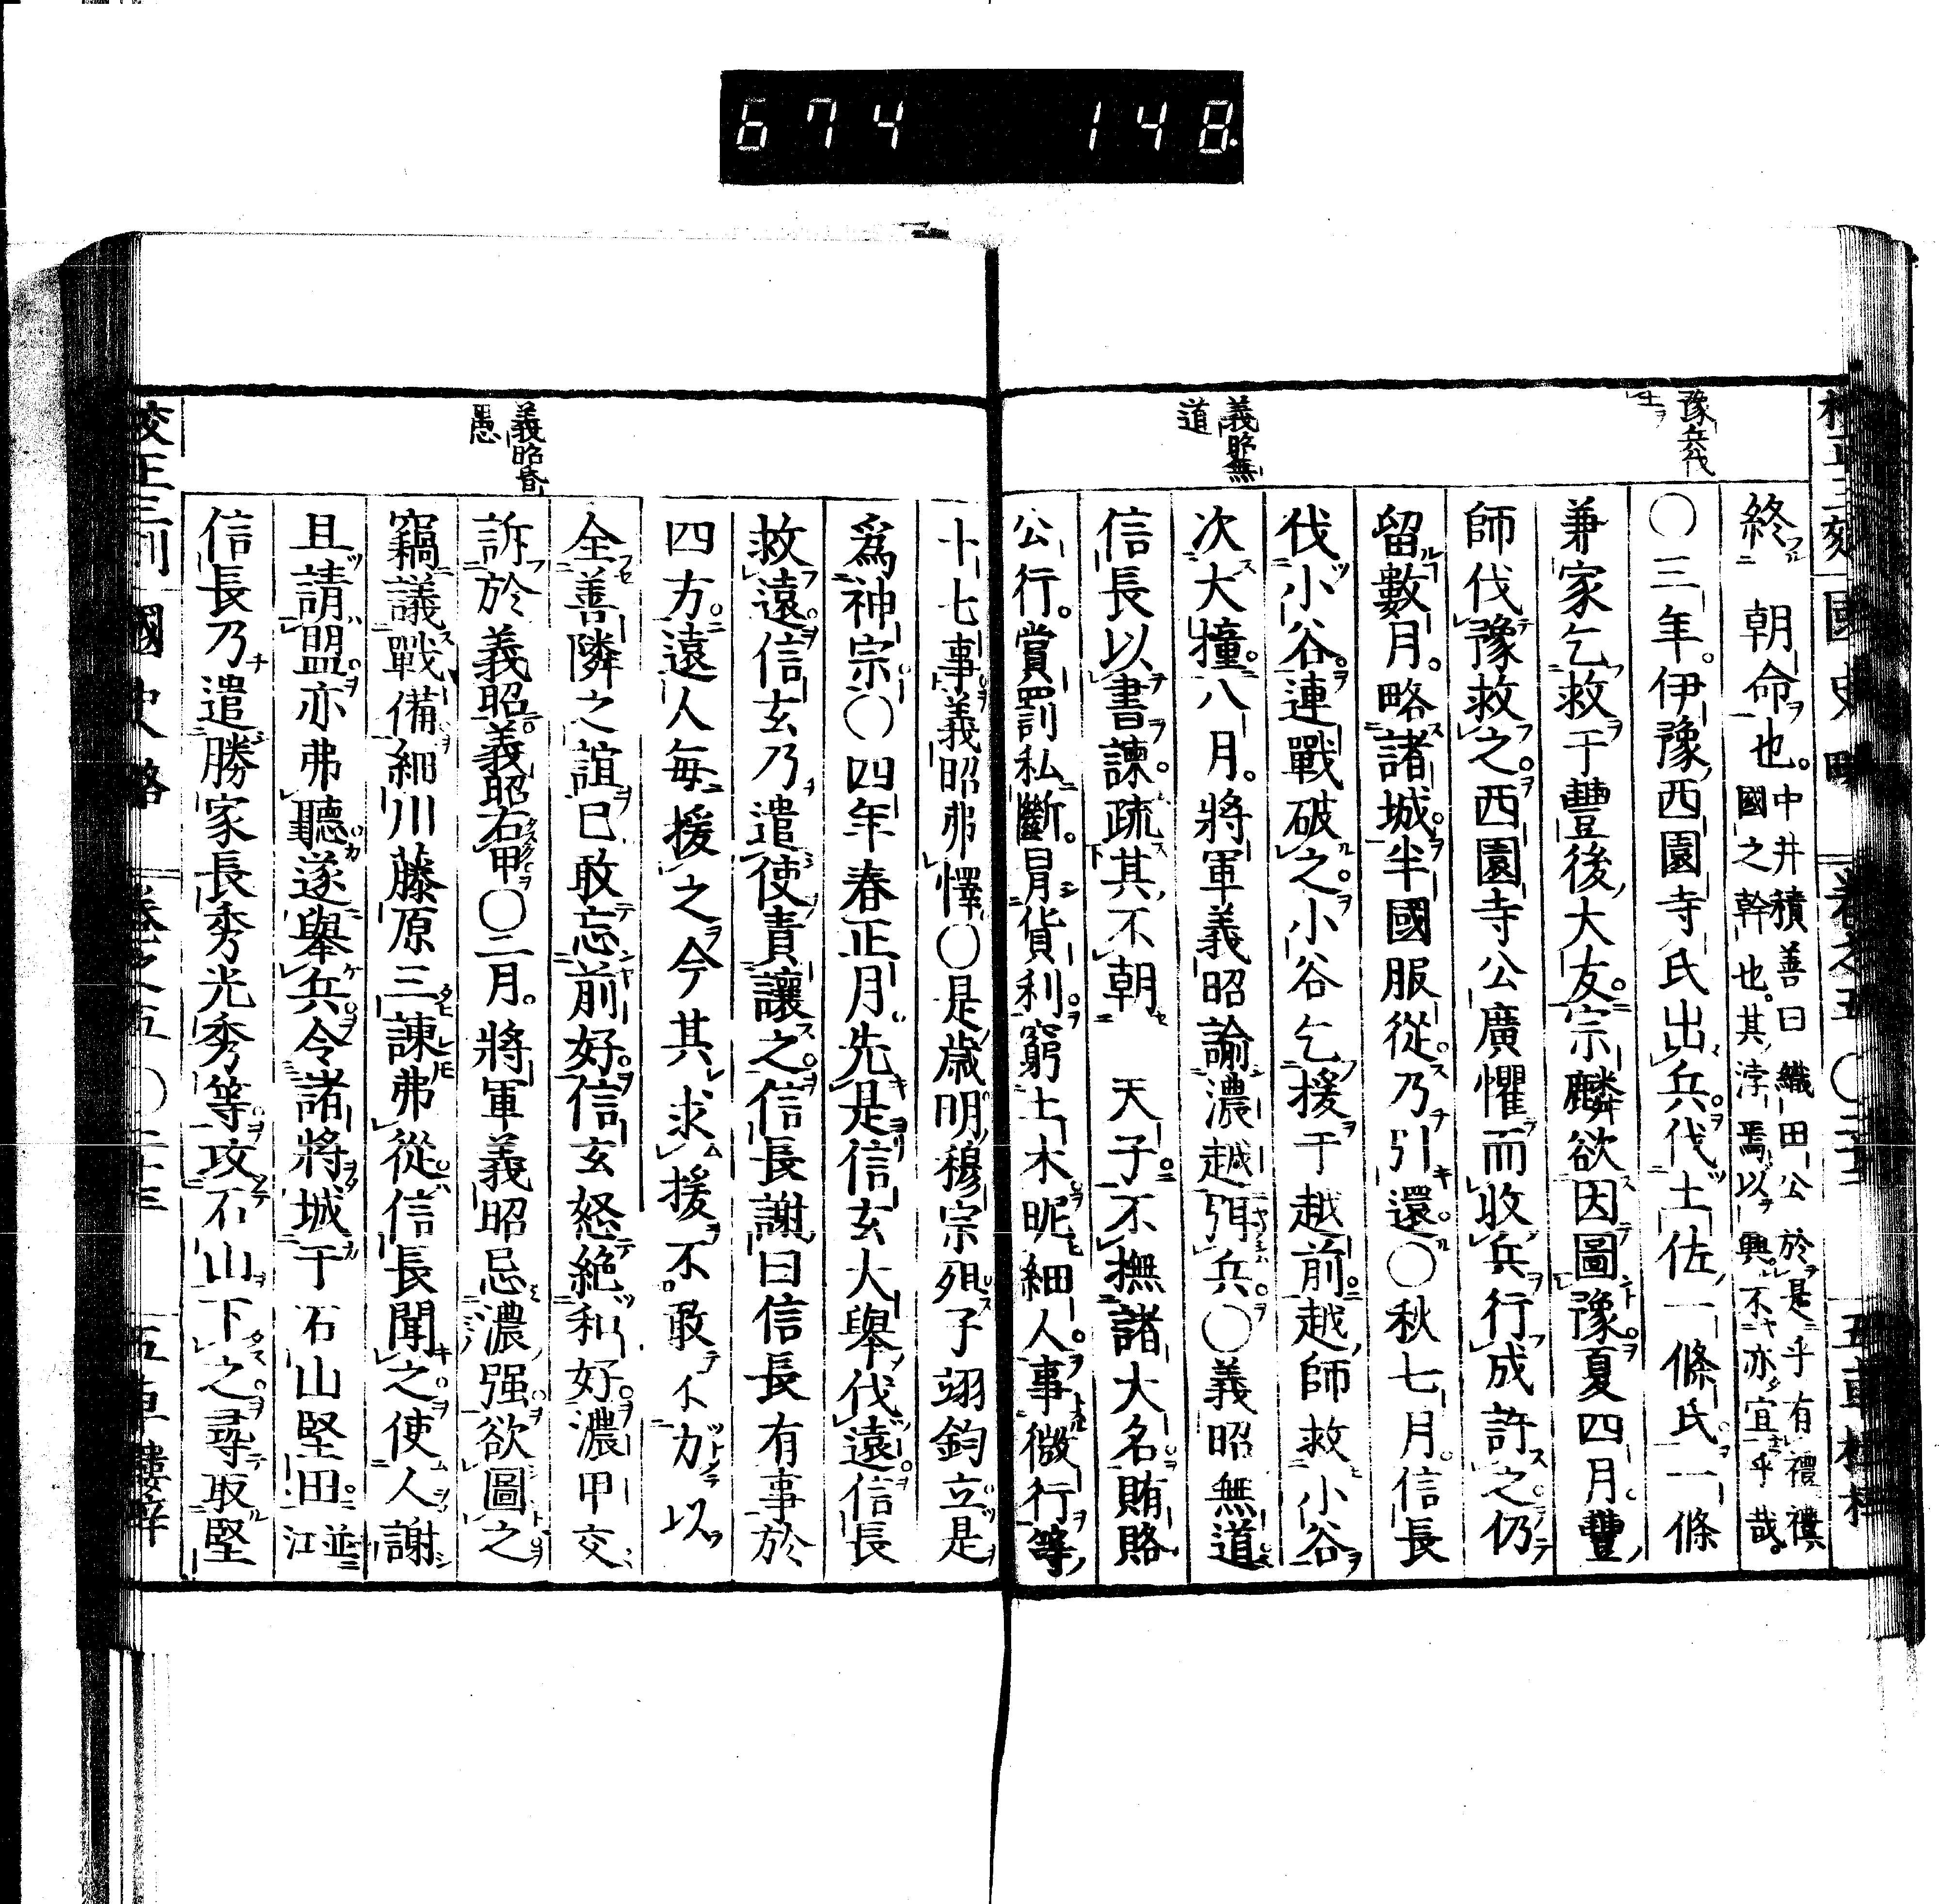 674 148
豫兵伐
土
義昭無
道
終朝命也。中井積善曰織田公於是乎有禮樸
國之幹也。其浡焉以興。不亦宜乎哉。
〇三年。伊豫西園寺氏出兵。伐土佐一條氏。一條
兼家乞救于豐後大友。宗麟欲因圖豫。夏四月。豐
師伐豫救之。西園寺公廣懼而收兵行成許之。仍
留數月。略諸城。半國服從。乃引還。〇秋七月。信長
伐小谷。連戰破之。小谷乞援于越前。越師救小谷
次大撞。八月。將軍義昭諭濃越弭兵。〇義昭無道
信長以書諫。疏其不朝天子。不撫諸大名。賄賂
公行。賞罰私斷。冒貨利。窮土木。昵細人。事微行等
義昭昏
愚
十七事。義昭弗懌〇是歲明穆宗殂子翊鈞立是
爲神宗〇四年春正月先是信玄大舉伐遠。信長
救遠。信玄乃遣使責讓之。信長謝曰信長有事於
四方。遠人每援之。今其求援不敢不力以
全善隣之誼。已敢忘前好。信玄怒絶和好。濃甲交
訴於義昭義昭右甲〇二月。將軍義昭忌濃强。欲圖之
竊議戰備細川藤原三諫弗從。信長聞之。使人謝
且請盟。亦弗聽。遂舉兵。令諸將城于石山堅田。並江
信長乃遣勝家長秀光秀等。攻石山下之。尋取堅
國史略
五車樓梓